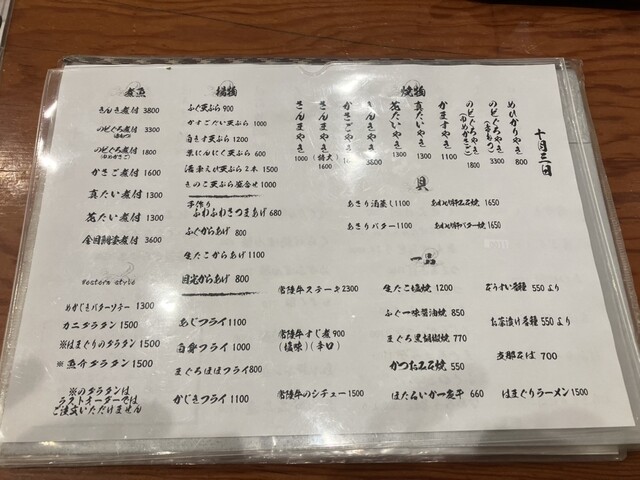 十月三日
煮魚
きんき煮付 3800
のどぐろ煮付 3300
のどぐろ煮付 1800
かさご煮付 1600
真たい煮付 1300
花だい煮付 1300
金目鯛姿煮付 3600
western style
めかじきバターソテー 1300
カニグラタン 1500
※はまぐりのグラタン 1500
※魚介グラタン 1500
※のグラタンは
ラストオーダーでは
ご注文いただけません
揚物
ふぐ天ぷら 900
かすごだい天ぷら 1000
白きす天ぷら 1200
黒にんにく天ぷら 600
活車えび天ぷら2本 1500
きのこ天ぷら盛合せ 1000
手作り
ふわふわさつまあげ 680
ふぐからあげ 800
生たこからあげ 1100
目光からあげ 800
あじフライ 1100
白身フライ 1000
まぐろほほフライ 800
かじきフライ 1100
焼物
めひかりやき 800
のどぐろやき 3300
のどぐろやき 1800
かますやき 1100
真だいやき 1300
花だいやき 1300
きんきやき 3800
かさごやき 1600
さんまやき (特大) 1600
さんまやき 1000
貝
あさり酒蒸し 1100
あさりバター 1100
1650
1650
一品
常陸牛ステーキ 2300
常陸牛すじ煮 900
(塩味)(辛口)
常陸牛のシチュー 1500
生たこ塩焼 1200
ふぐ一味醤油焼 850
まぐろ黒胡椒焼 770
かつお石焼 550
ほたるいか一夜干 660
ぞうすい各種 550より
お茶漬け各種 550より
支那そば 700
はまぐりラーメン 1500